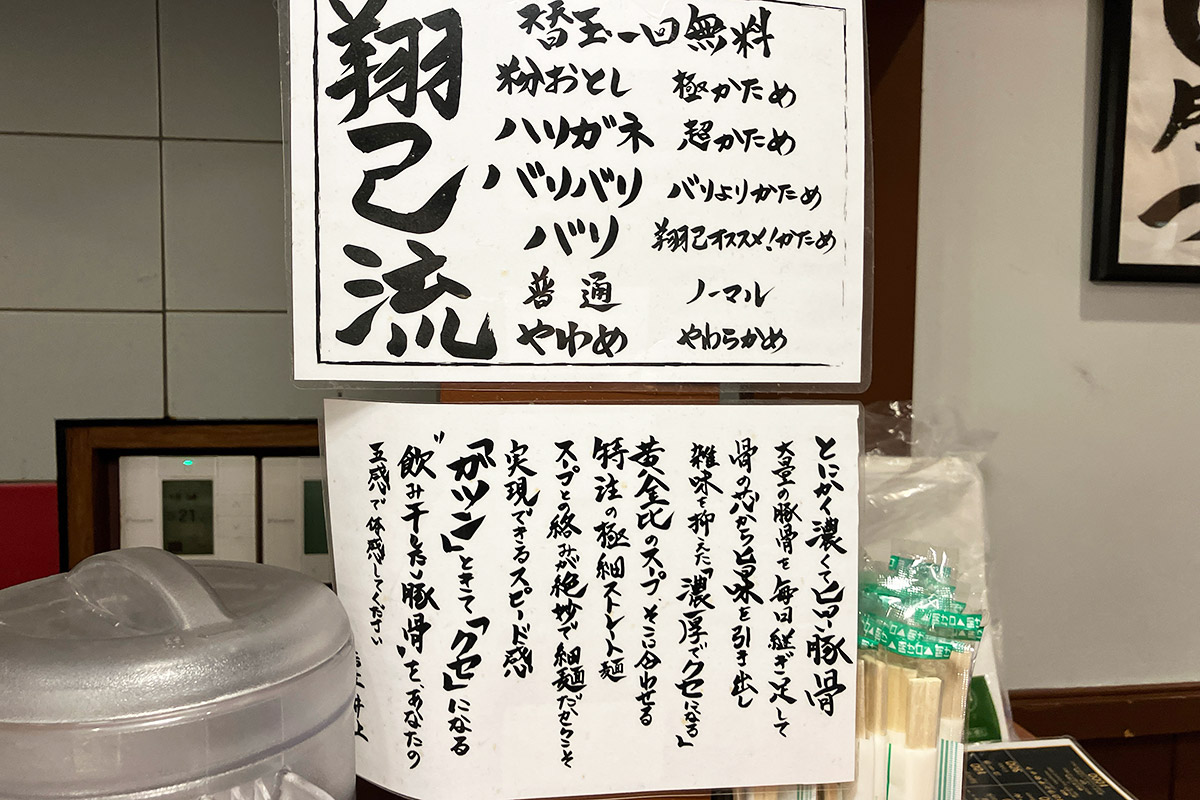 翔己流
替玉一回無料
粉おとし 極かため
ハリガネ 超かため
バリバリ バリよりかため
バリ 翔己オススメ!かため
普通 ノーマル
やわめ やわらかめ
とにかく濃くて旨い豚骨
大量の豚骨を毎回継ぎ足して
骨の芯から旨味を引き出し
雑味を抑えた「濃厚でクセになる」
黄金比のスープ、そこに合わせる
特注の極細ストレート麺
スープとの絡みが絶妙で細麺だからこそ
実現できるスピード感
「ガツン」ときて「クセ」になる
"飲み干したい豚骨"を、あなたの
五感で体感してください
井上